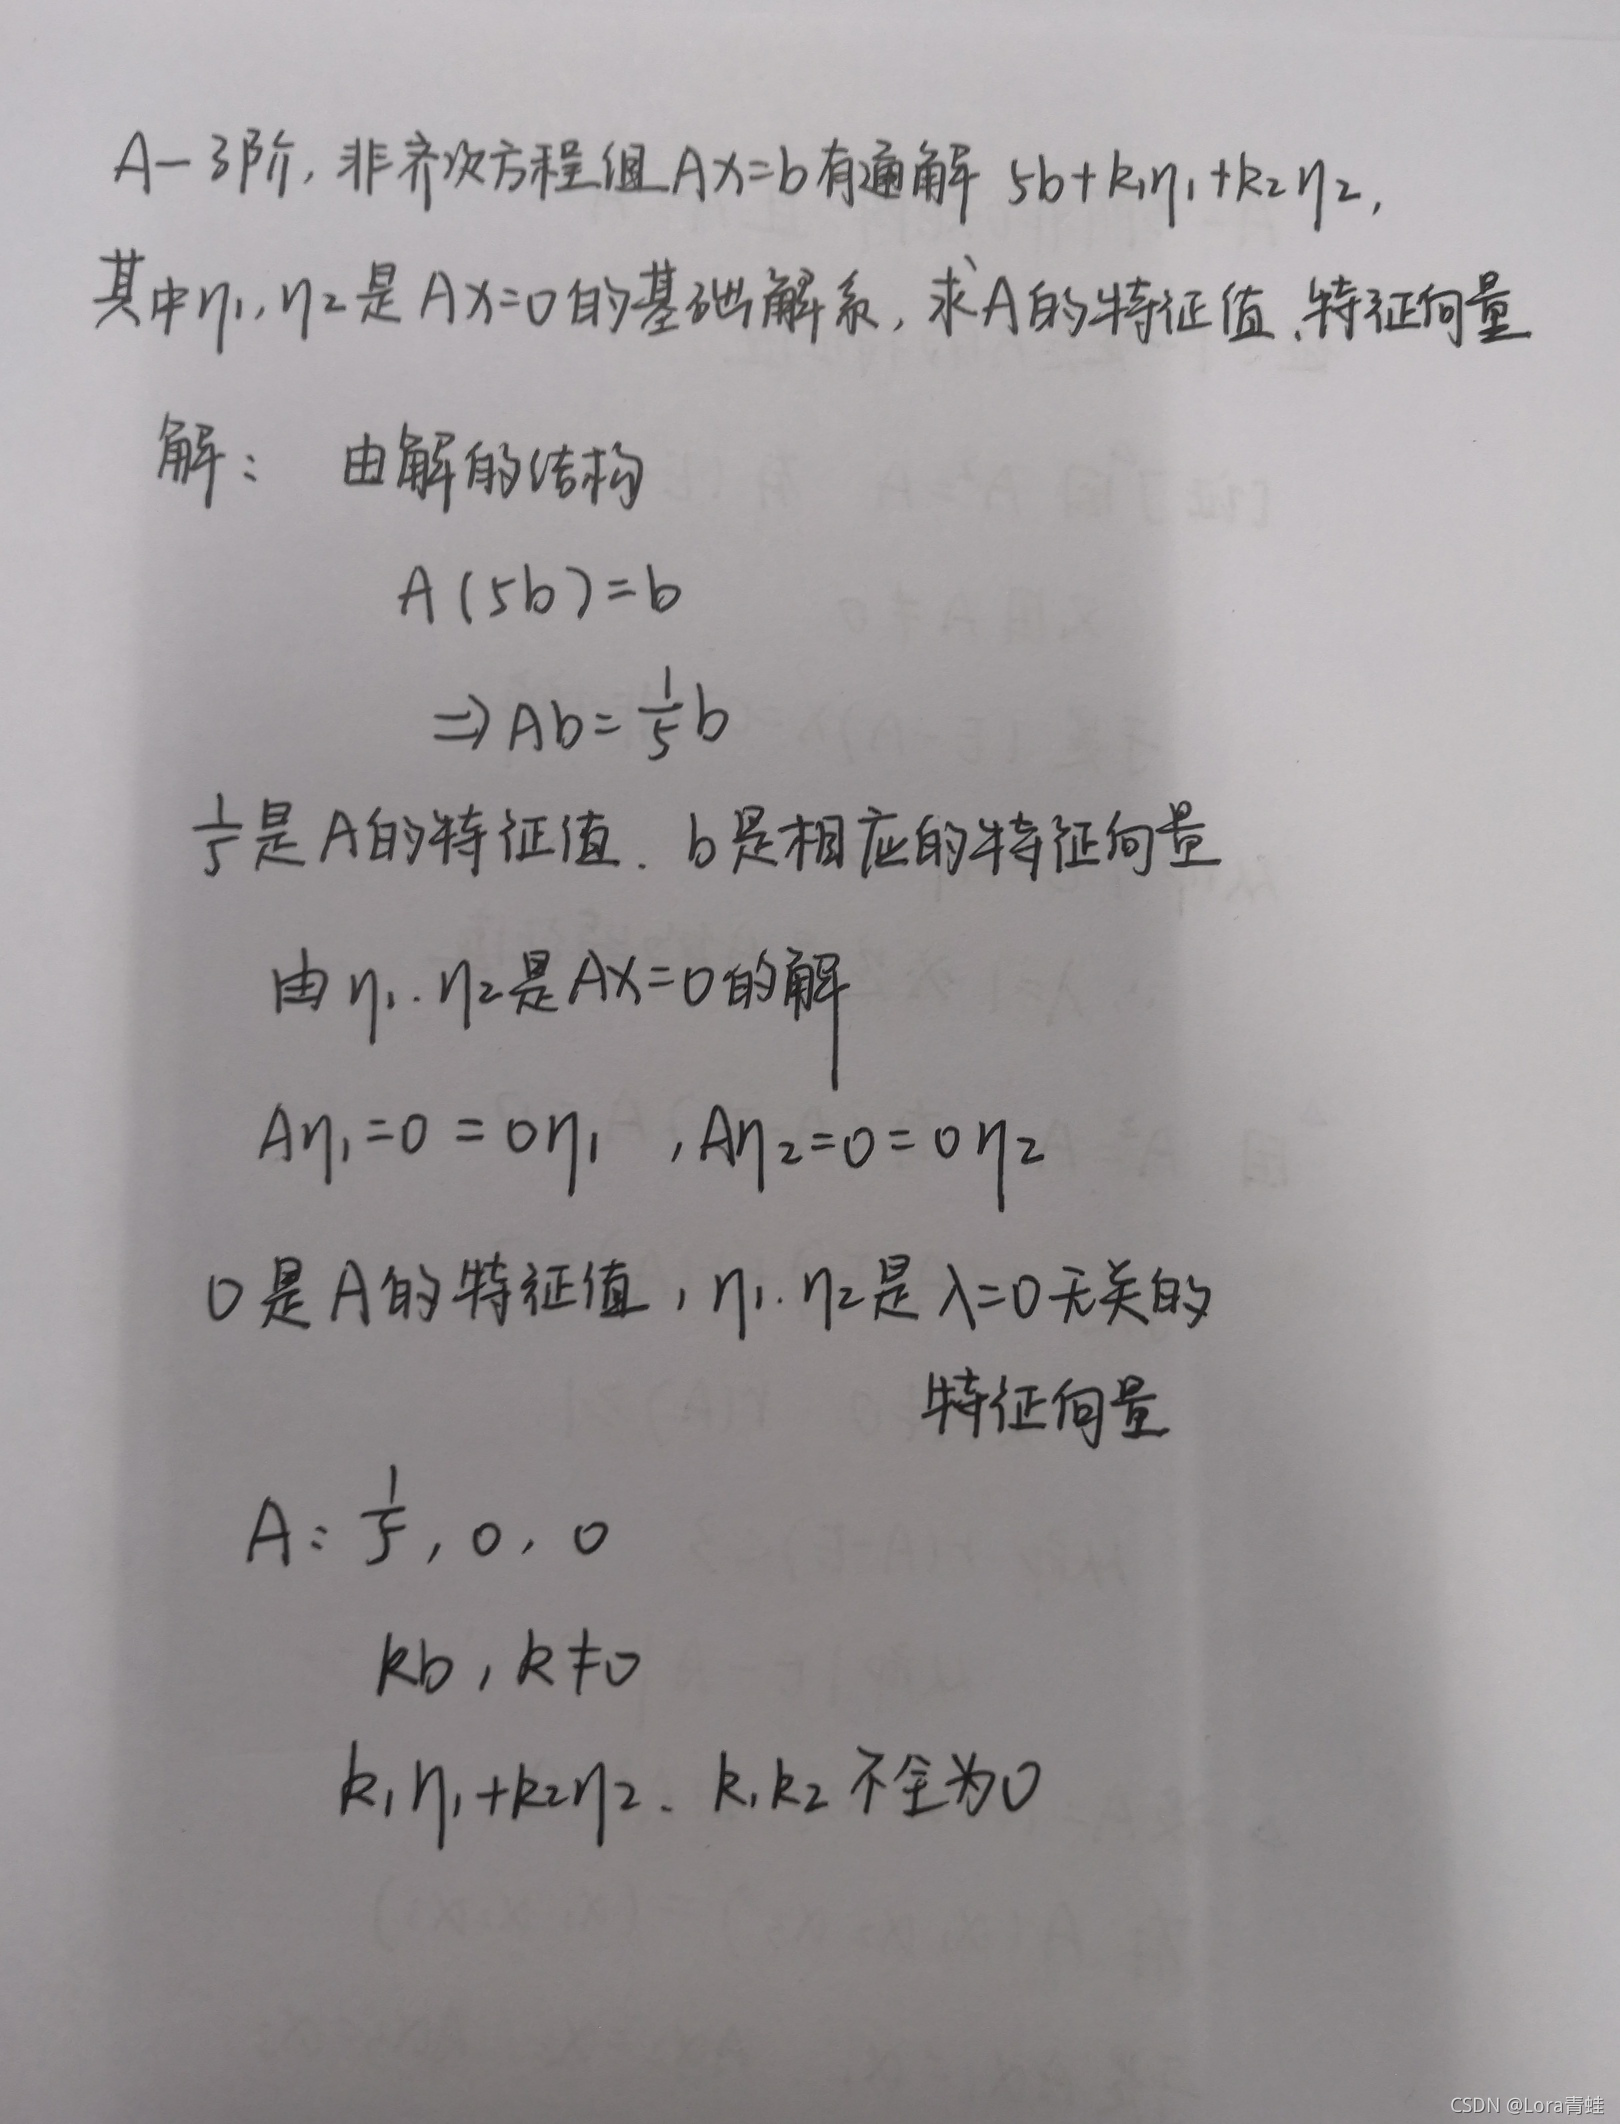 A-3阶,非齐次方程组Ax=b有通解 5b+k₁η₁+k₂η₂,
其中η₁,η₂是Ax=0的基础解系,求A的特征值、特征向量
解: 由解的结构
A(5b)=b
⇒Ab=1/5 b
1/5是A的特征值.b是相应的特征向量
由η₁.η₂是Ax=0的解
Aη₁=0=0η₁ ,Aη₂=0=0η₂
0是A的特征值,η₁.η₂是λ=0无关的
特征向量
A: 1/5, 0, 0
kb, k≠0
k₁η₁+k₂η₂. k₁k₂不全为0
CSDN @Lora青蛙